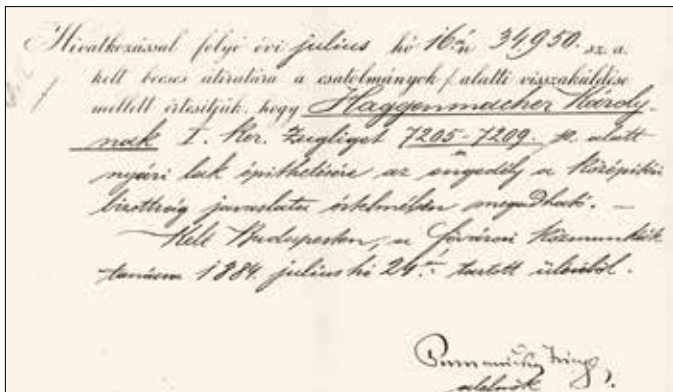 Hivatkozással folyó évi julius hó 16án 34,950. sz. a.
kelt becses átiratára a csatolmányok /. alatti visszaküldése
mellett értesitjük, hogy Haggenmacher Károly-
nak I. Ker. Zugliget 7205-7209. sz. alatt
nyári lak épithetésére az engedély a középitési
bizottság javaslata értelmében megadható. —
Kelt Budapesten, a fővárosi közmunkák
tanácsa 1884. julius hó 24én tartott üléséből.
alelnök